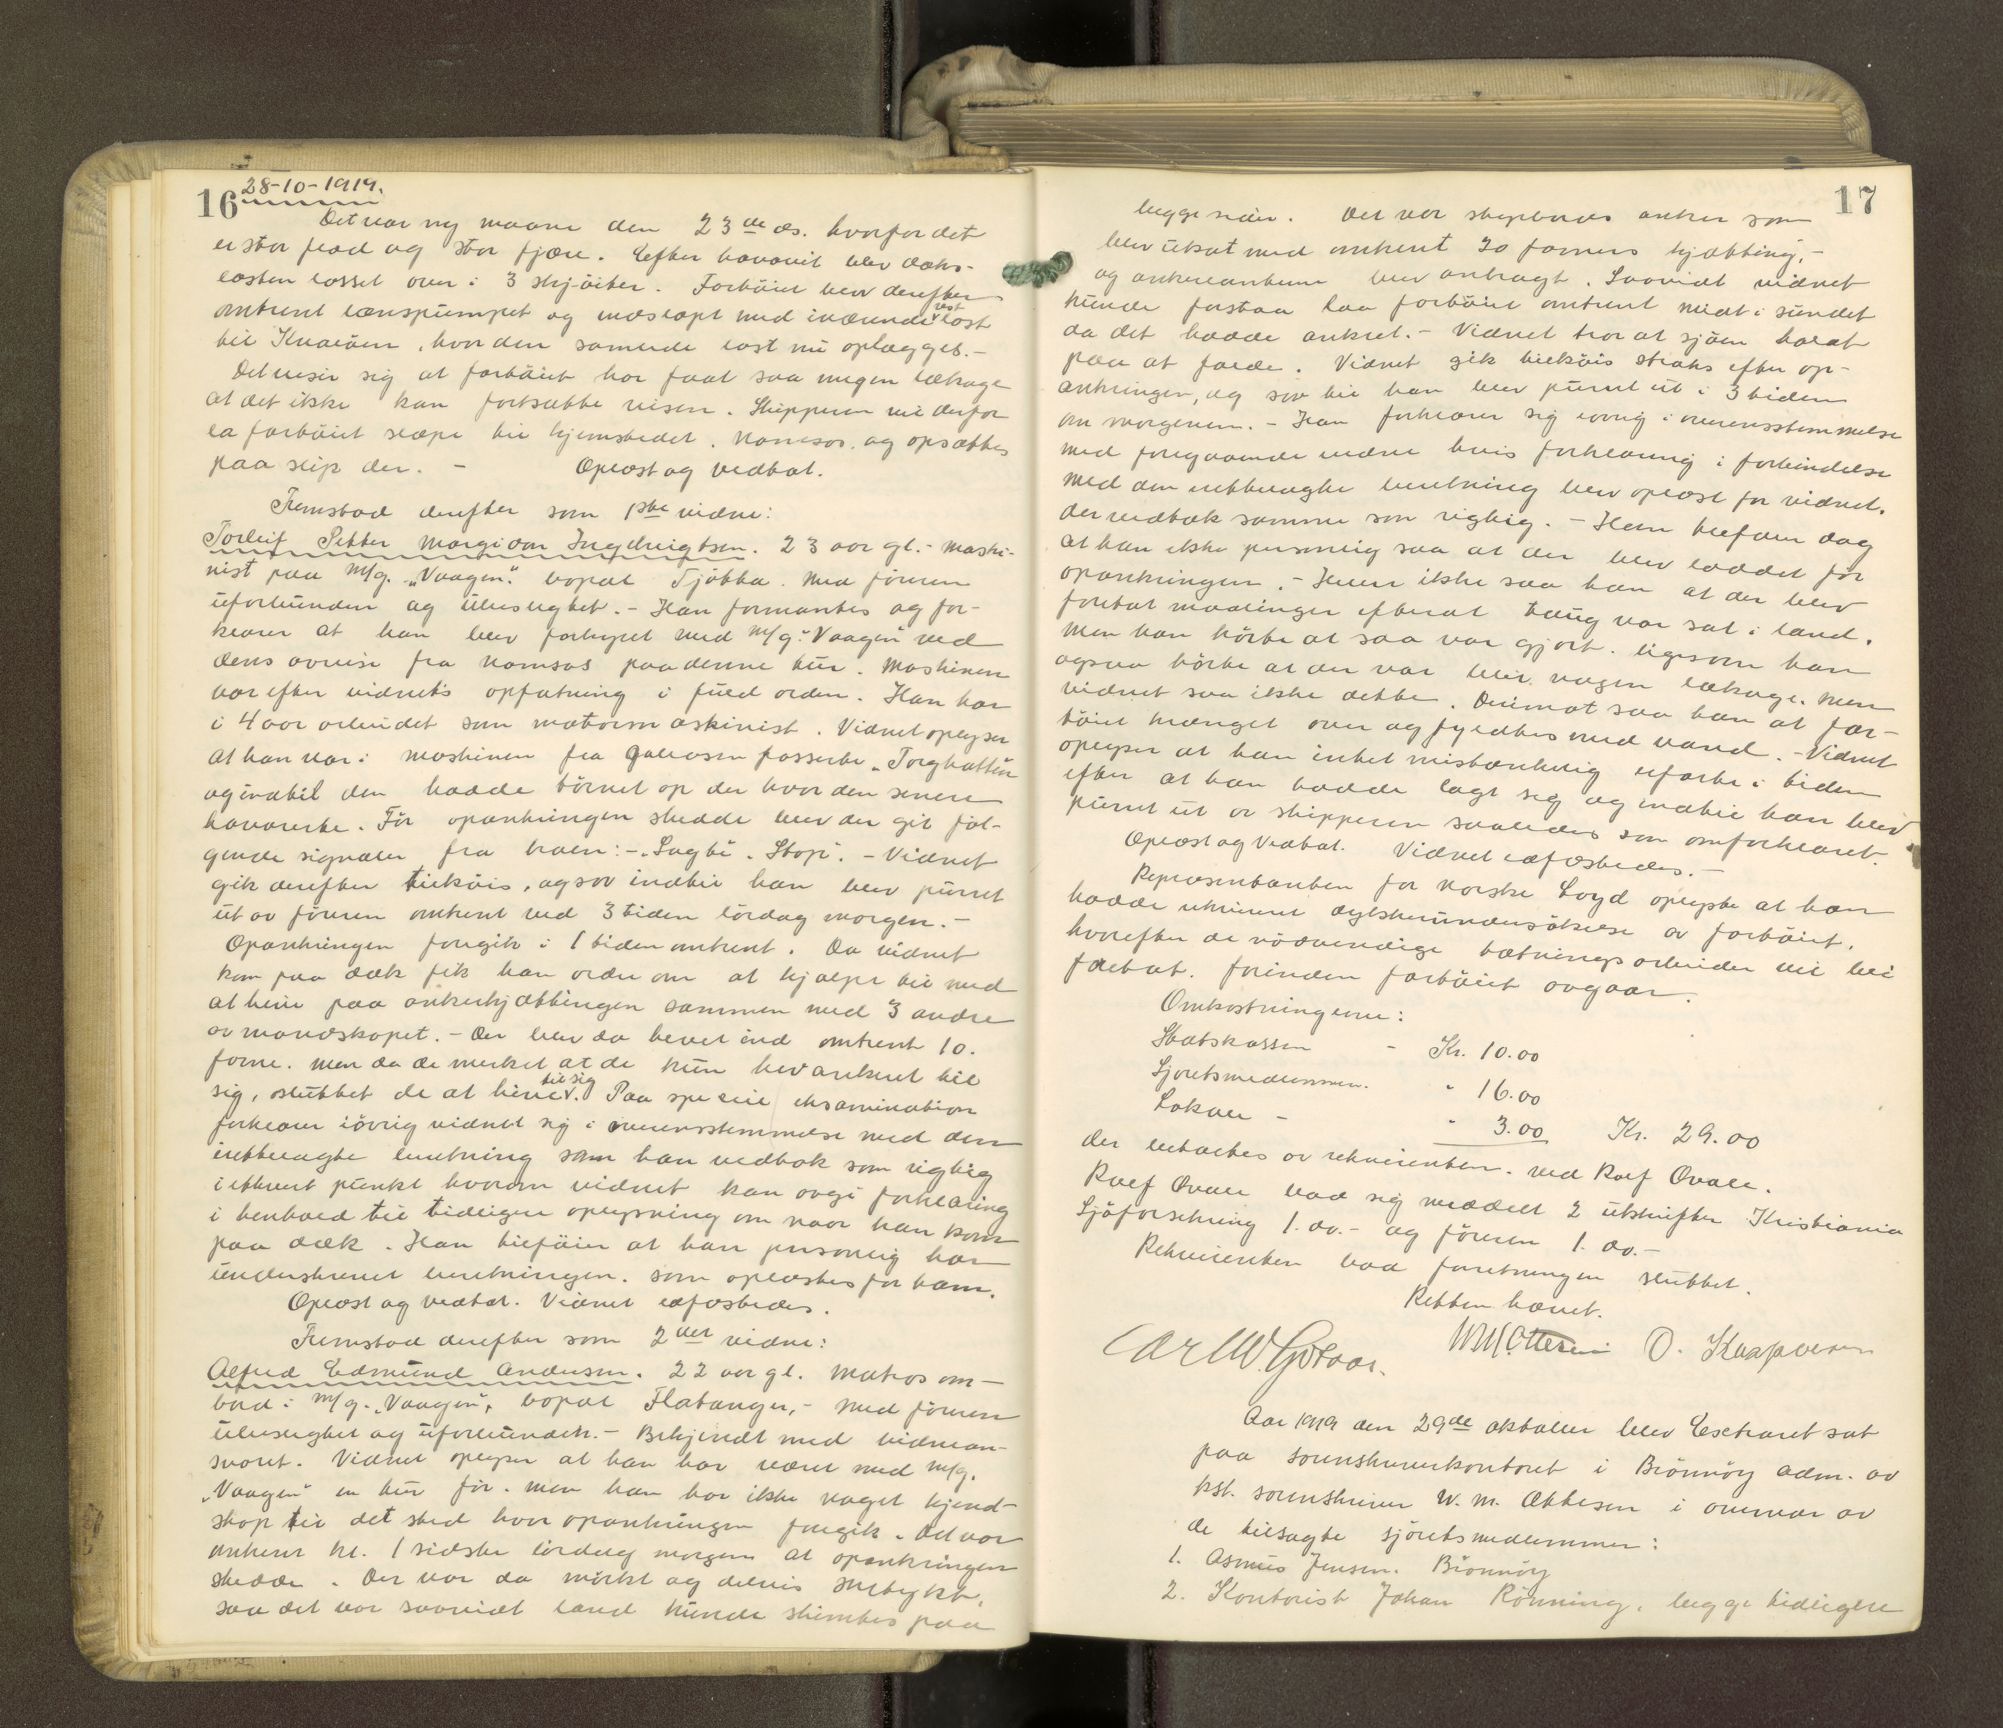 16 28-10-1919.
Det var ny maane den 23de ds. hvorfor det
er stor flod og stor fjære. Efter havariet blev dæks-
lasten losset over i 3 skjöiter. Fartöiet blev derefter
omtrent lænspumpet og indslæpt med indeværende rest last
til Kvalöen, hvor den samlede last nu oplægges.-
Det viser sig at fartöiet har faat saa megen lækage
at det ikke kan fortsætte reisen. Skipperen vil derfor
la fartöiet slæpe til hjemstedet. Namsos. og opsættes
paa slip der. - Oplæst og vedtat.
Fremstod derefter som 1ste vidne:
Torleif Petter Margido Ingebrigtsen. 23 aar gl.- maski-
nist paa M/g. "Vaagen". bopæl Tjötta. Med föreren
ubeslunden og ubeslegtet.- Han formantes og for-
klarer at han blev forhyret med M/g. "Vaagen" ved
dens avreise fra Namsos paa denne tur. Maskinen
var efter vidnets opfatning i fuld orden. Han har
i 4 aar arbeidet som motormaskinist. Vidnet oplyser
at han var i maskinen fra galeasen passerte "Torghatten
og indtil den hadde törnet op der hvor den senere
havarerte. För opankringen skedde blev der git föl-
gende signaler fra broen:-"Sagte". "Stop". - Vidnet
gik derefter tilköis, og sov indtil han blev purret
ut av föreren omtrent ved 3 tiden lördag morgen.-
Opankringen foregik i 1 tiden omtrent. Da vidnet
kom paa dæk fik han ordre om at hjælpe til med
at hive paa ankerkjættingen sammen med 3 andre
av mandskapet.- Der blev da hevet ind omtrent 10.
favne. men da de merket at de kun hev ankeret til
sig, sluttet de at hive til sig. Paa speciel eksamination
forklarer iövrig vidnet sig i overensstemmelse med den
fremlagte beretning som han vedtok som rigtig
i ethvert punkt hvorom vidnet kan avgi forklaring
i henhold til tidligere oplysning om naar han kom
paa dæk. Han tilföier at han personlig har
underskrevet beretningen. som oplæstes for ham.
Oplæst og vedtat. Vidnet edfæstedes.
Fremstod derefter som 2det vidne:
Alfred Edmund Andersen. 22 aar gl. matros om-
bord i M/g. "Vaagen", bopæl Flatanger,- med föreren
ubeslegtet og uforbunden.- Bekjendt med vidnean-
svaret. Vidnet oplyser at han har været med M/g.
"Vaagen" en tur för. men han har ikke noget kjend-
skap til det sted hvor opankringen foregik. Det var
omtrent kl. 1 sidste lördag morgen at opankringen
skedde. Der var da mörkt og delvis snetykke,
saa det var saavidt land kunde skimtes paa
17
begge sider. Det var styrbords anker som
blev utsat med omtrent 20 favners kjætting,-
og ankerlanterne blev anbragt. Saavidt vidnet
kunde forstaa laa fartöiet omtrent midt i sundet
da det hadde ankret.- Vidnet tror at sjöen holdt
paa at falde. Vidnet gik tilköis straks efter op-
ankringen, og sov til han blev purret ut i 3 tiden
om morgenen.- Han forklarer sig iövrig i overensstemmelse
med foregaaende vidne hvis forklaring i forbindelse
med den fremlagte beretning blev oplæst for vidnet.
der vedtok samme som rigtig.- Han tilföier dog
at han ikke personlig saa at der blev loddet för
opankringen.- Heller ikke saa han at der blev
foretat maalinger efterat taug var sat i land.
Men han hörte at saa var gjort. ligesom han
ogsaa hörte at der var blit nogen lækage. Men
vidnet saa ikke dette. Derimot saa han at far-
töiet krænget over og fyldtes med vand.- Vidnet
oplyser at han intet mistænkelig erfarte i tiden
efter at han hadde lagt sig og indtil han blev
purret ut av skipperen saaledes som omforklaret.
Oplæst og vedtat. Vidnet edfæstedes.-
Repræsentanten for Norske Loyd oplyste at han
hadde rekvireret dykkerundersökelse av fartöiet.
hvorefter de nödvendige tætningsarbeider vil bli
foretat. forinden fartöiet avgaar.
Omkostningerne:
Statskassen - Kr. 10.00
Sjöretsmedlemmer. " 16.00
Lokale - " 3.00 Kr. 29.00
der betaltes av rekvirenten. ved Rolf Qvale.
Rolf Qvale bad sig meddelt 2 utskrifter Kristiania
Sjöforsikring 1. do.- og föreren 1. do.-
Rekvirenten bad forretningen sluttet.
Retten hævet.
Carl W. Götaas. W.M.Ottesen O. Kaspersen
Aar 1919 den 29de oktober blev Extraret sat
paa sorenskriverkontoret i Brönnöy adm. av
kst. sorenskriver W. M. Ottesen i overvær av
de tilsagte sjöretsmedlemmer:
1. Asmus Jensen. Brönnöy
2. Kontorist Johan Rönning. begge tidligere